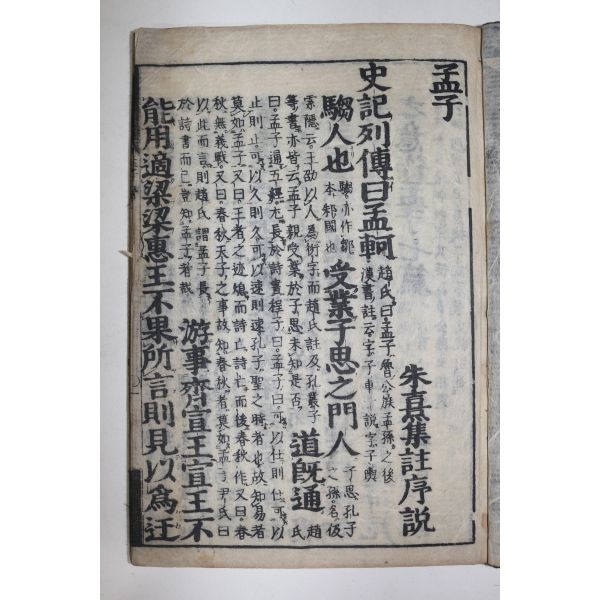 孟子
朱熹集註序說
史記列傳曰孟軻趙氏曰孟子魯公族孟孫之後漢書註云字子車一說字子輿
騶人也騶亦作鄒本邾國也受業子思之門人子思孔子之孫名伋
索隱云王劭以人爲衍字而趙氏註及孔叢子等書亦皆云孟子親受業於子思未知是否道旣通趙氏
曰孟子通五經尤長於詩書程子曰孟子曰可以仕則仕可以
止則止可以久則久可以速則速孔子聖之時者也故知易者
莫如孟子又曰王者之迹熄而詩亡詩亡而後春秋作又曰春
秋無義戰又曰春秋天子之事故知春秋者莫如孟子尹氏曰
以此而言則趙氏謂孟子長於詩書而已豈知孟子者哉游事齊宣王宣王不
能用適梁梁惠王不果所言則見以爲迂